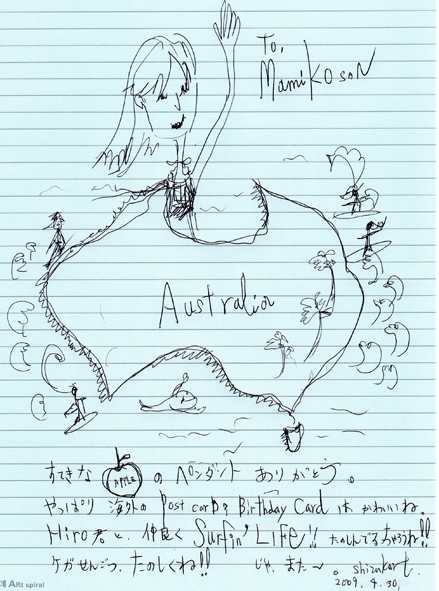 To,
Mamikosan
Australia
すてきな APPLE の ペンダント ありがとう。
やっぱり 海外の Post cardや Birthday Card は、かわいいね。
Hiro君と、仲良く Surfin' LIFE!! たのしんでるちゃうね!!
ケガせんよう、たのしくね!! じゃ、また〜。shizukart.
2009. 4. 30,
ARt spiral